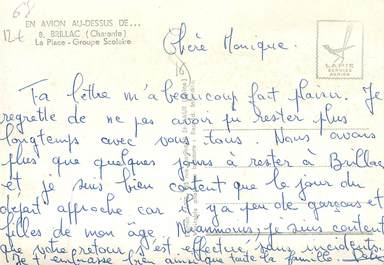 EN AVION AU-DESSUS DE...
8. BRILLAC (Charente)
La Place - Groupe Scolaire
LAPIE
SERVICE
AERIEN
Chère Monique.
Ta lettre m'a beaucoup fait plaisir. Je
regrette de ne pas avoir pu rester plus
longtemps avec vous tous. Nous avons
plus que quelques jours à rester à Brillac
et je suis bien content que le jour du
départ approche car il y a peu de garçons et
filles de mon âge. Néanmoins, je suis content
que votre retour s'est effectué sans incidents.
Je t'embrasse bien ainsi que toute la famille.